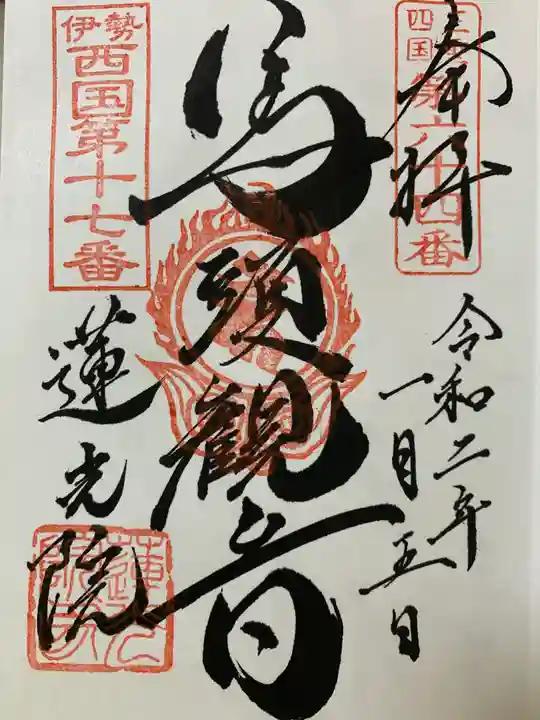 奉拝
四国
第六十四番
令和二年
一月五日
馬頭観音
伊勢
西国第十七番
蓮光院